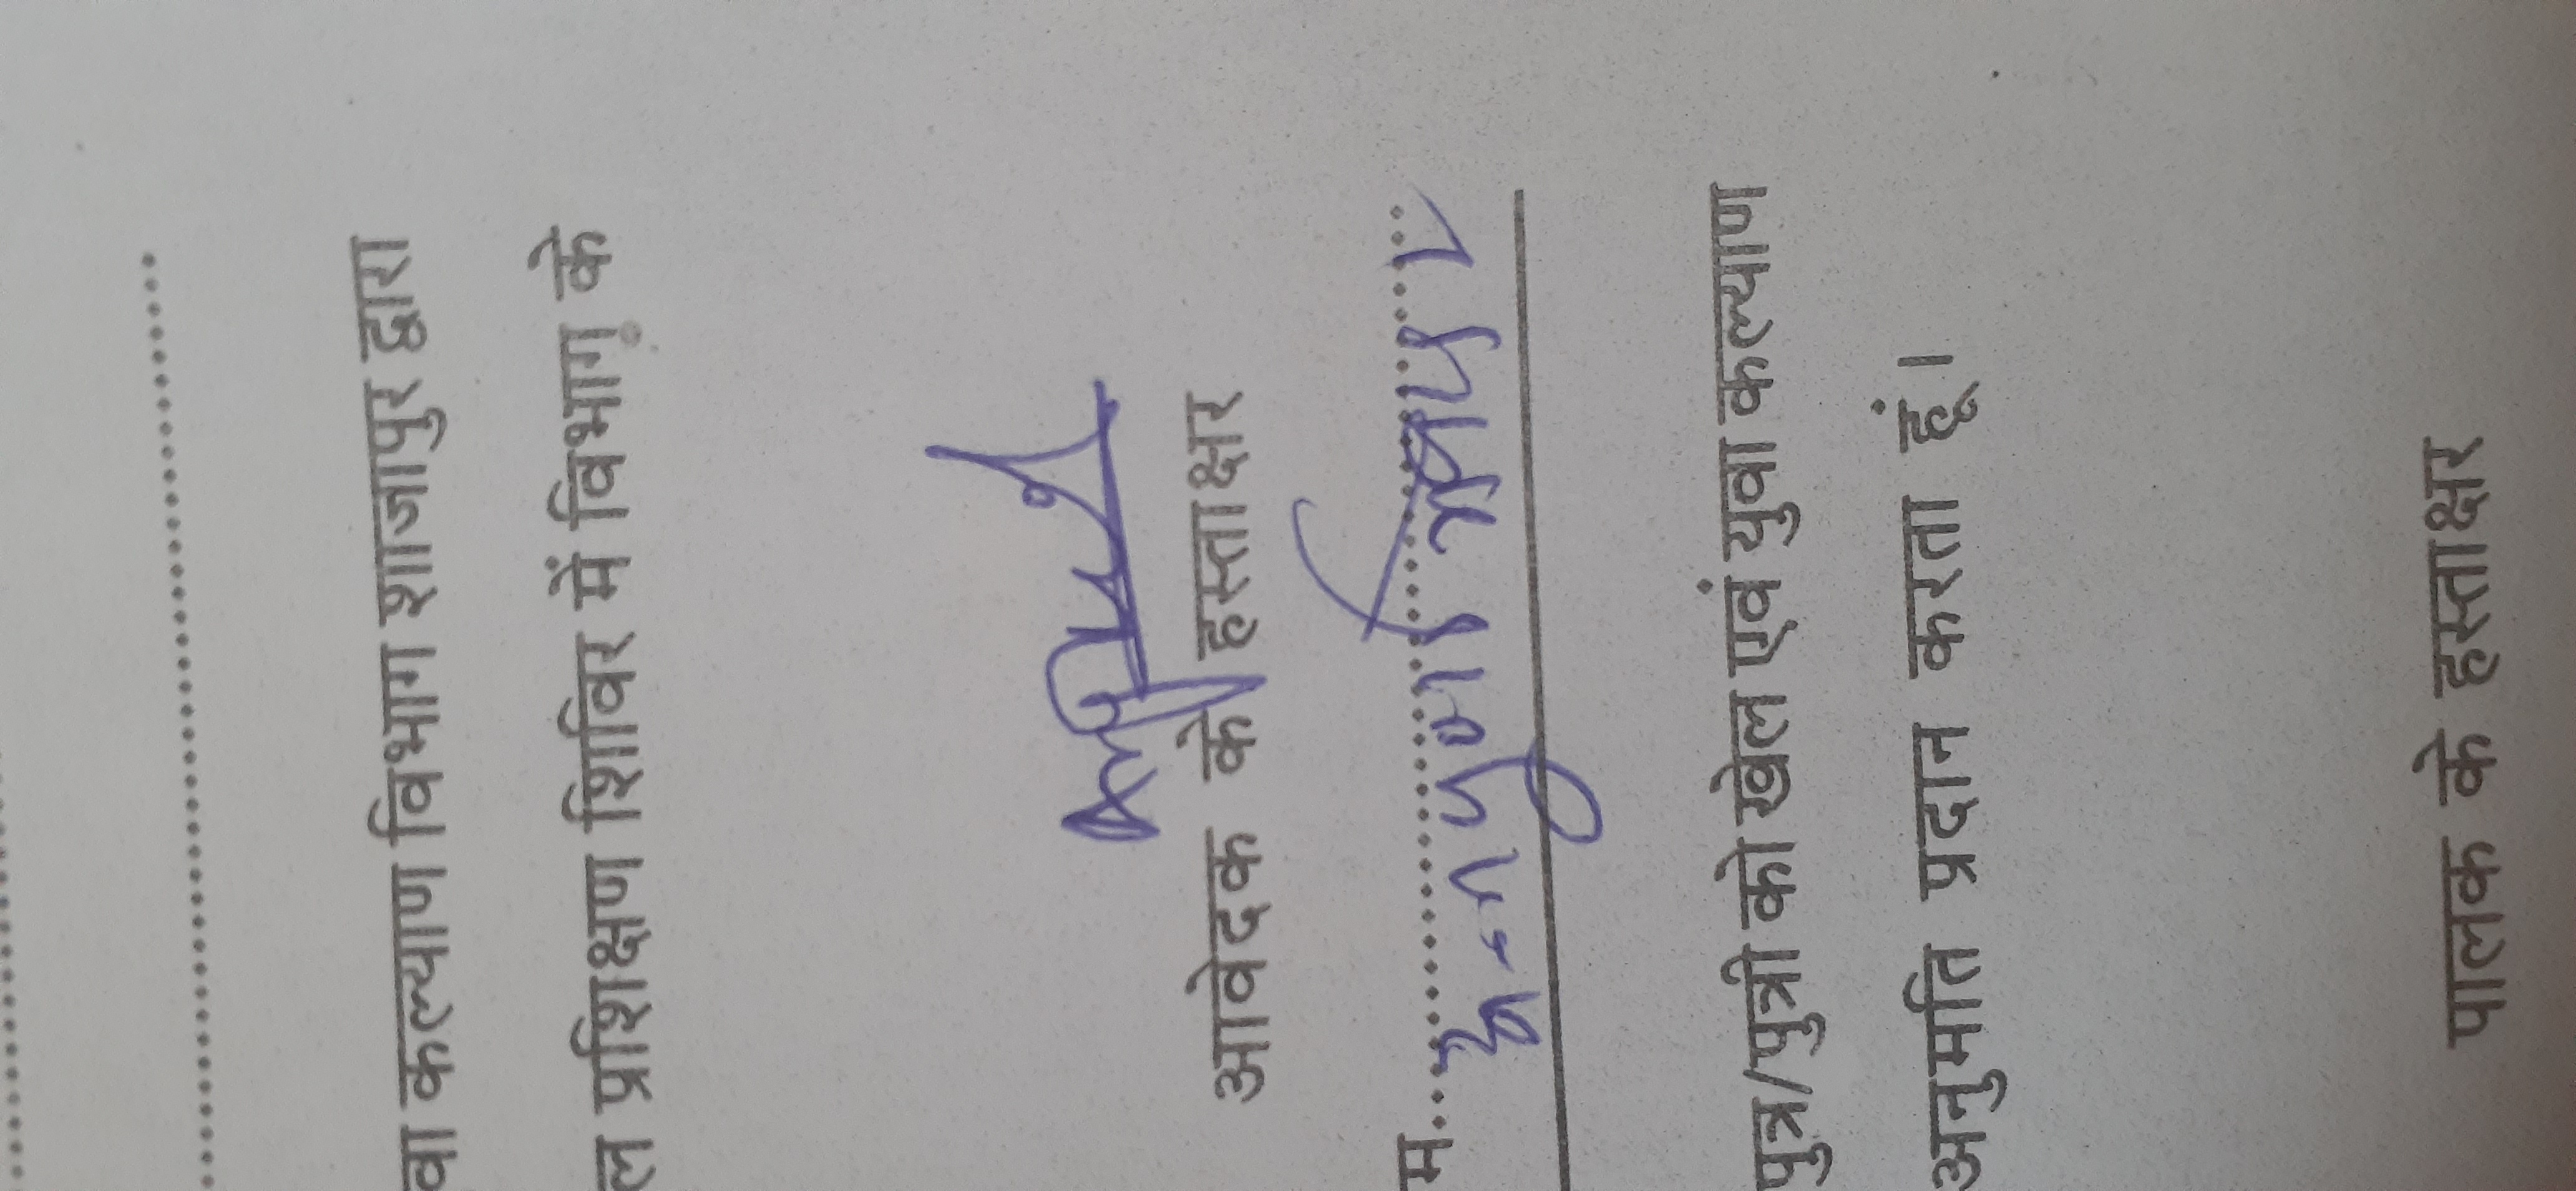 वा कल्याण विभाग शाजापुर द्वारा
ल प्रशिक्षण शिविर में विभाग के
आवेदक के हस्ताक्षर
म.
पुत्र/पुत्री को खेल एवं युवा कल्याण
अनुमति प्रदान करता हूं।
पालक के हस्ताक्षर